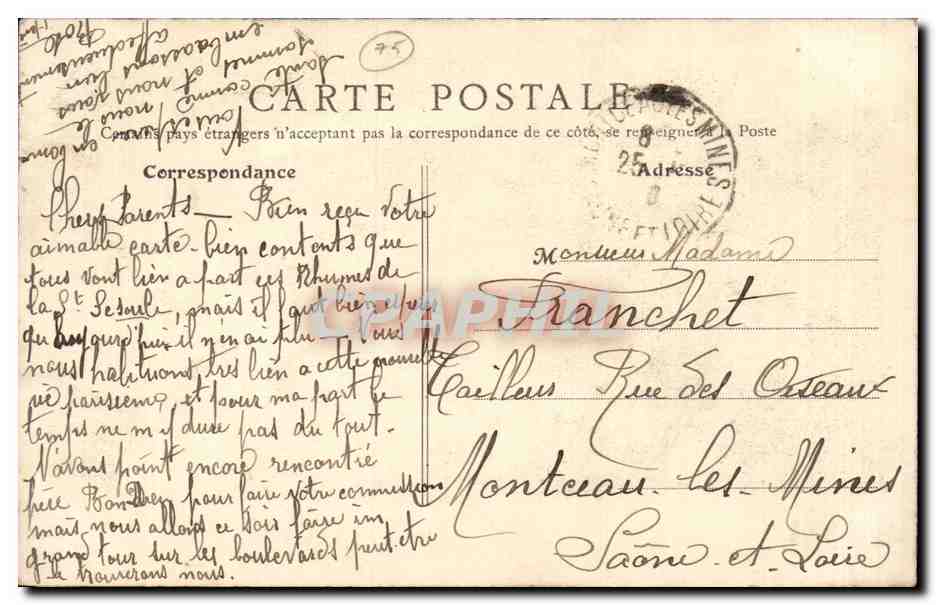 CARTE POSTALE
Certains pays étrangers n'acceptent pas la correspondance de ce côté, se renseigner à la Poste
Correspondance
Chers Parents — Bien reçu votre
aimable carte - bien contents que
tous vont bien a part ces Rhumes de
la St. , mais il faut bien
qu , il n'en ai plus — Vous
nous habituont très bien a cette nouvelle
vie parisienne, et pour ma part le
temps ne m'y dure pas du tout.
N'avons point encore rencontré
pour faire votre commission
mais nous allons ce soir faire un
grand tour sur les boulevards peut-être
le trouverons nous.
Vous est
en bonne
santé comme nous le
sommes et nous vous
embrassons bien
affectueusement
75
MONTCEAU LES MINES
8
25
SAONE ET LOIRE
Adresse
Monsieur Madame
Franchet
Tailleur Rue des Oiseaux
Montceau-les-Mines
Saône-et-Loire
CPAPHIL